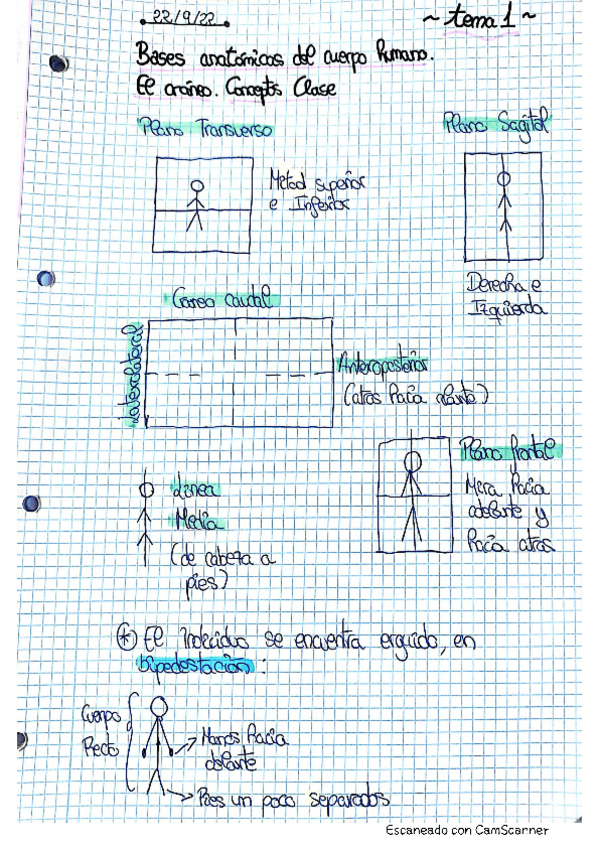 22/9/22
~ tema 1 ~
Bases anatómicas del cuerpo humano.
El cráneo. Conceptos Clase
Plano Transverso
Mitad superior
e Inferior
Plano Sagital
Derecha e
Izquierda
Craneo caudal
Laterolateral
Anteroposterior
(atras hacia delante)
Plano frontal
Mira hacia
adelante y
hacia atras
Linea
Media
(de cabeza a
pies)
* El individuo se encuentra erguido, en
bipedestación:
Cuerpo
Recto
Manos hacia
delante
Pies un poco separados
Escaneado con CamScanner